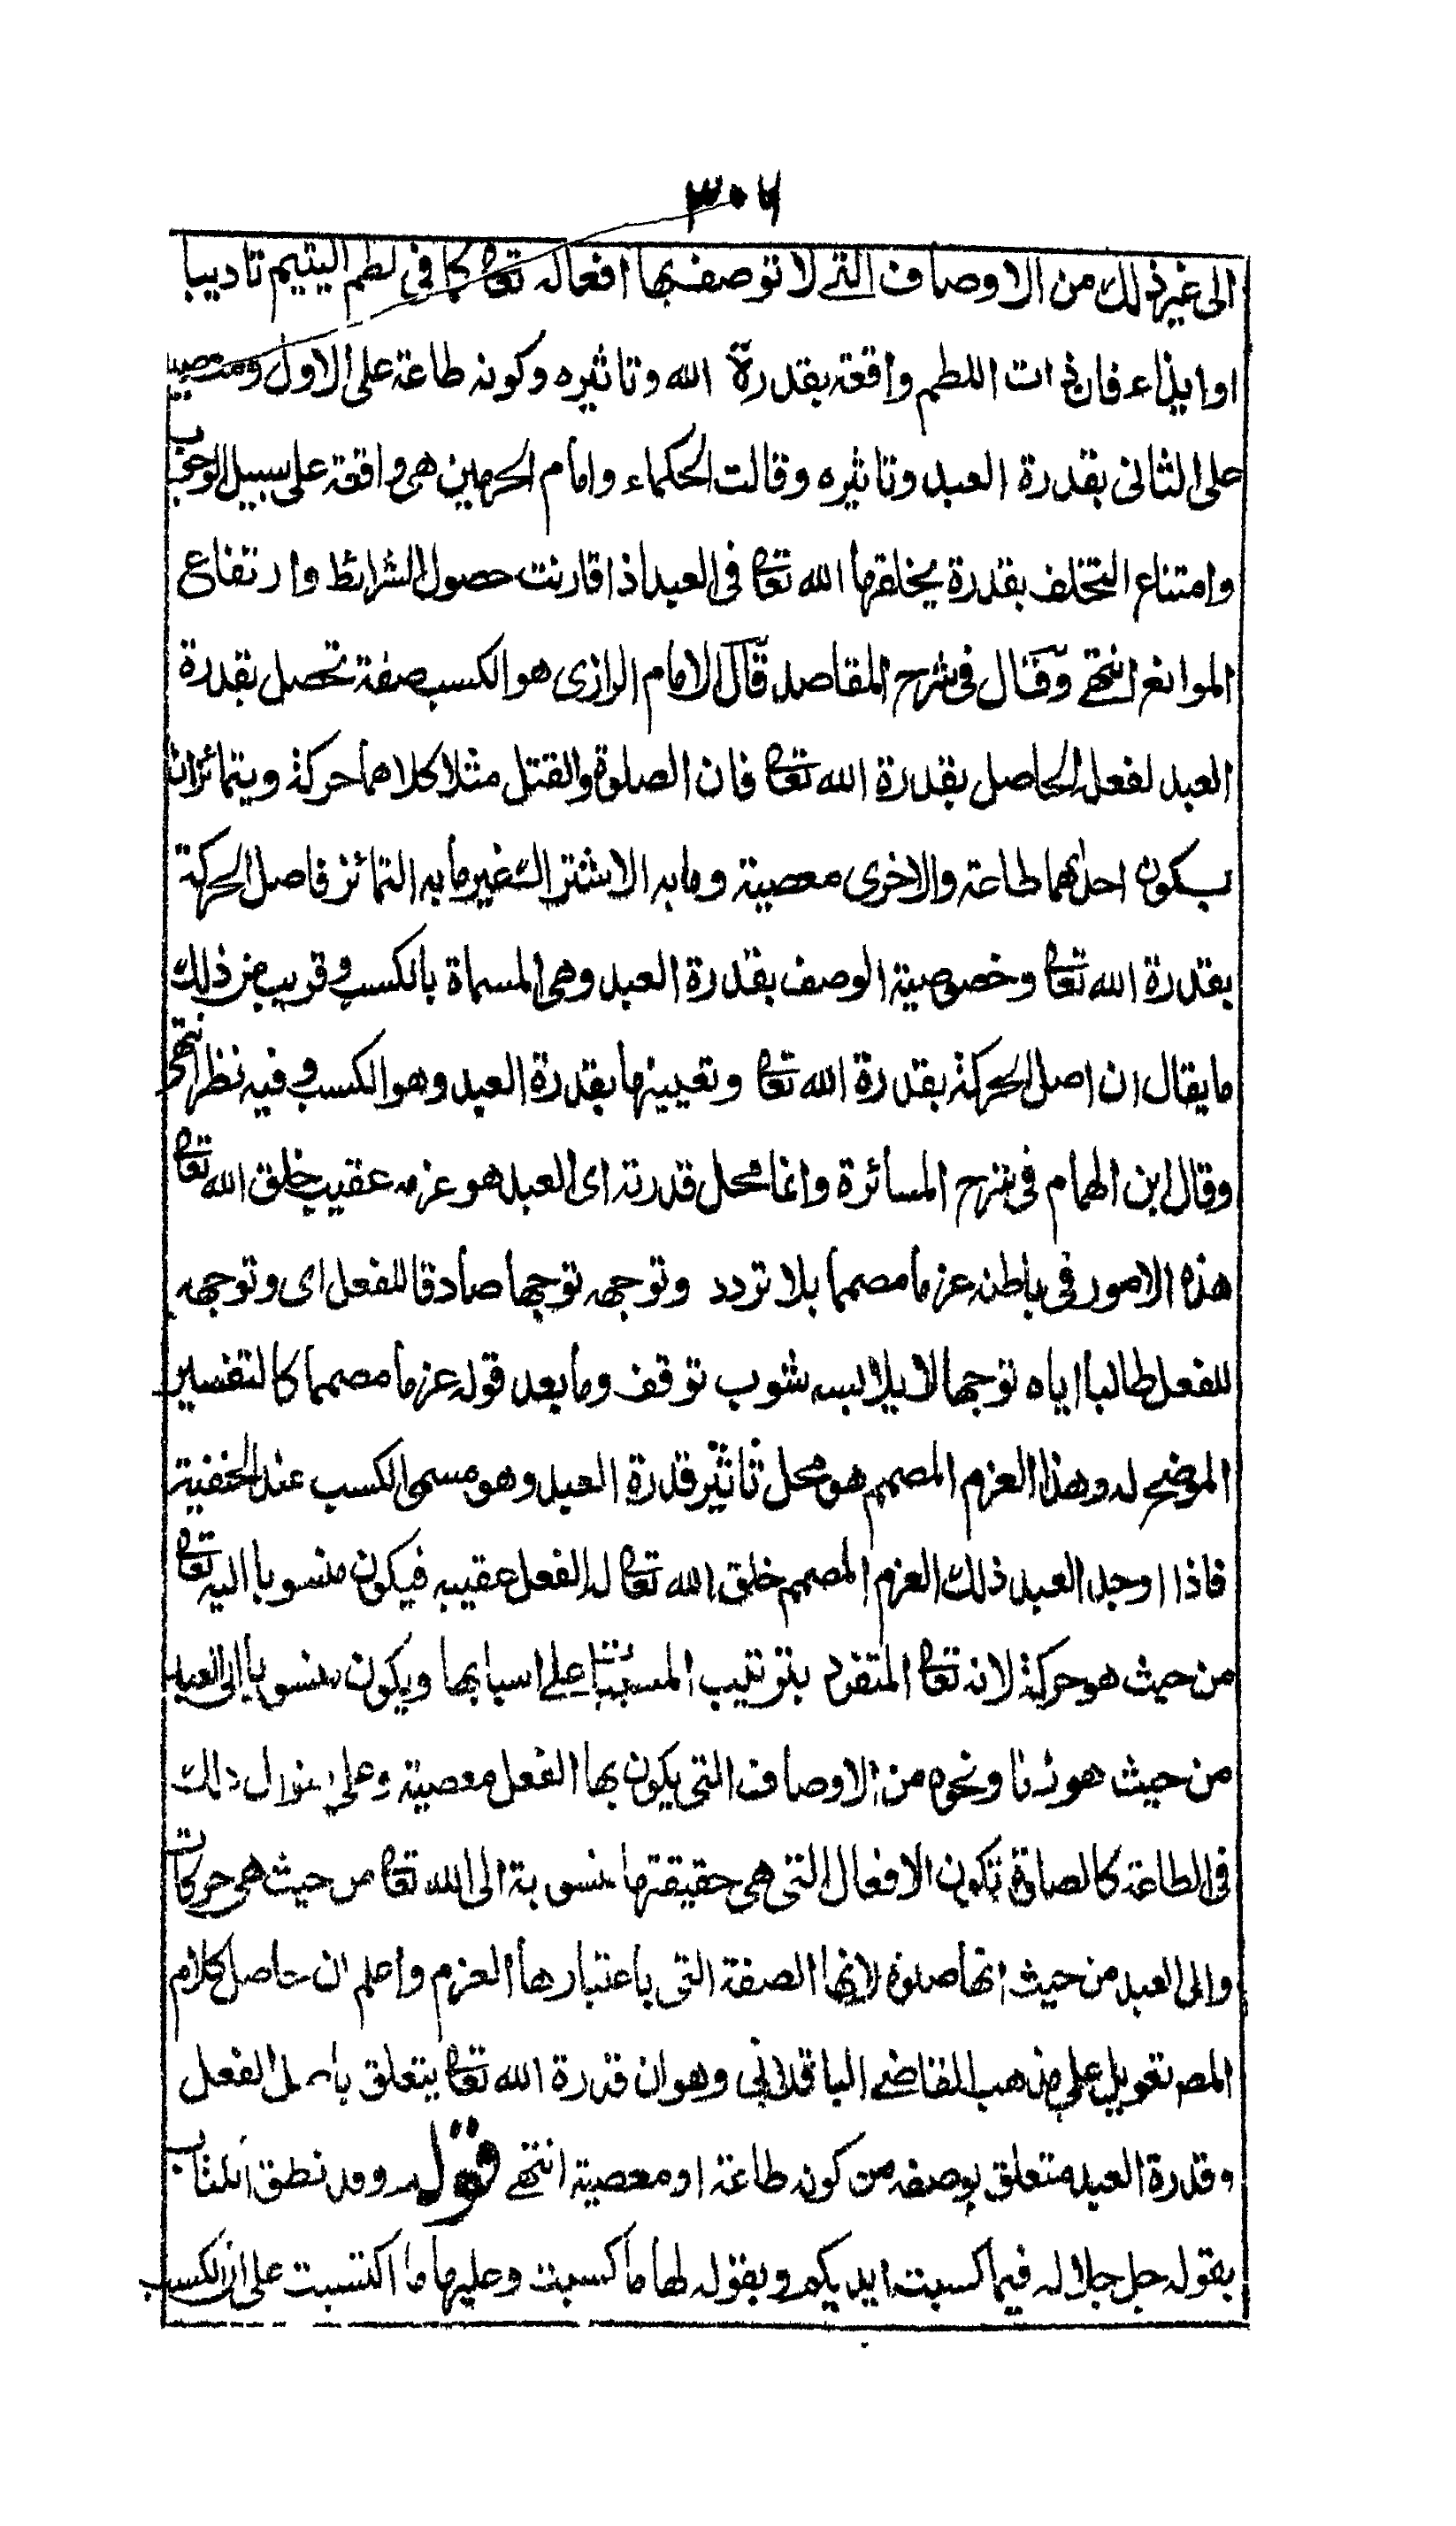 ٣٠٦
الى غير ذلك من الاوصاف التے لا توصف بها افعاله تعا كما فى لطم اليتيم تاديبا
او ايذاء فان ذات اللطم واقعة بقدرة الله وتاثيره وكونه طاعة على الاول ومعصية
على الثانى بقدرة العبد وتاثيره وقالت الحكماء وامام الحرمين هى واقعة على سبيل الوجوب
وامتناع التخلف بقدرة يخلقها الله تعا فى العبد اذا قارنت حصول الشرائط وارتفاع
الموانع انتهے وقال فى شرح المقاصد قال الامام الرازى هو الكسب صفة تحصل بقدرة
العبد لفعل الحاصل بقدرة الله تعا فان الصلوة والقتل مثلا كلاهما حركة ويتمائزان
بكون احدٰهما طاعة والاخرى معصية وما به الاشتراك غير ما به التمائز فاصل الحركة
بقدرة الله تعا وخصوصية الوصف بقدرة العبد وهى المسماة بالكسب وقريب من ذلك
ما يقال ان اصل الحركة بقدرة الله تعا وتعيينها بقدرة العبد وهو الكسب وفيه نظر انتهى
وقال ابن الهمام فى شرح المسائرة وانما محل قدرته اى العبد هو عزمه عقيب خلق الله تعا
هذه الامور فى باطنه عزما مصمما بلا تردد وتوجهه توجها صادقا للفعل اى وتوجهه
للفعل طالبا اياه توجها لا يلابسه شوب توقف وما بعد قوله عزما مصمما كالتفسير
الموضح له وهذا العزم المصمم هو محل تاثير قدرة العبد وهو مسمى الكسب عند الحنفية
فاذا اوجد العبد ذلك العزم المصمم خلق الله تعا له الفعل عقيبه فيكون منسوبا اليه تعا
من حيث هو حركة لانه تعا المتفرد بترتيب المسببات على اسبابها ويكون منسوبا الى العبد
من حيث هو زنا ونحوه من الاوصاف التى يكون بها الفعل معصية وعلى منوال ذلك
فى الطاعة كالصلوة تكون الافعال التى هى حقيقتها منسوبة الى الله تعا من حيث هى حركات
والى العبد من حيث انها صلوة لانها الصفة التى باعتبارها العزم واعلم ان حاصل كلام
المص تعويل على مذهب القاضى الباقلانى وهو ان قدرة الله تعا يتعلق باصل الفعل
وقدرة العبد متعلق بوصفه من كونه طاعة او معصية انتهے قوله وقد نطق الكتاب
بقوله جل جلاله فيما كسبت ايديكم وبقوله لها ما كسبت وعليها ما اكتسبت على ان الكسب